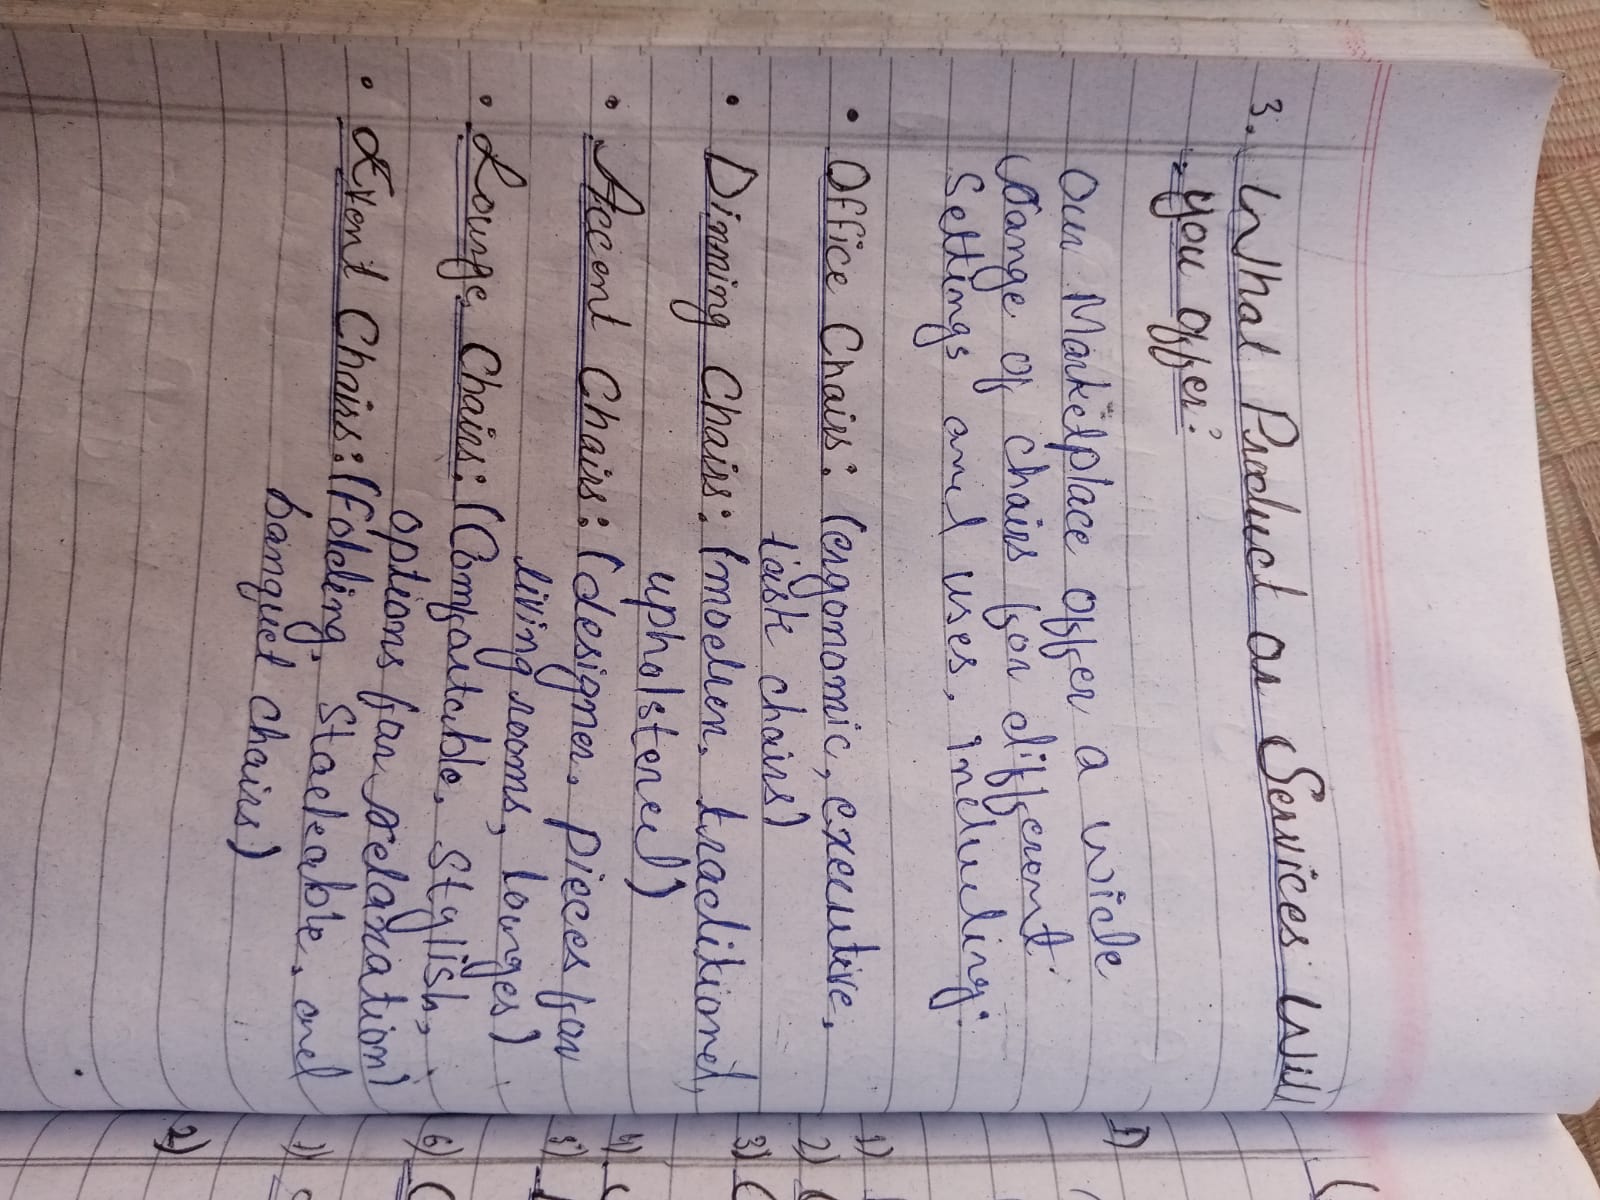 3. What Product or Services Will
you offer?
Our Marketplace offer a wide
range of chairs for different
Settings and uses, including:
• Office Chairs: (ergonomic, executive,
task chairs)
• Dinning Chairs: (modren, traditional,
upholstered)
• Accent Chairs: (designer, pieces for
living rooms, lounges)
• Lounge Chairs: (Comfortable, Stylish,
options for relaxation)
• Event Chairs: (Folding, Stackable, and
banquet chairs)
1)
1)
2)
3)
4)
5)
6)
1)
2)